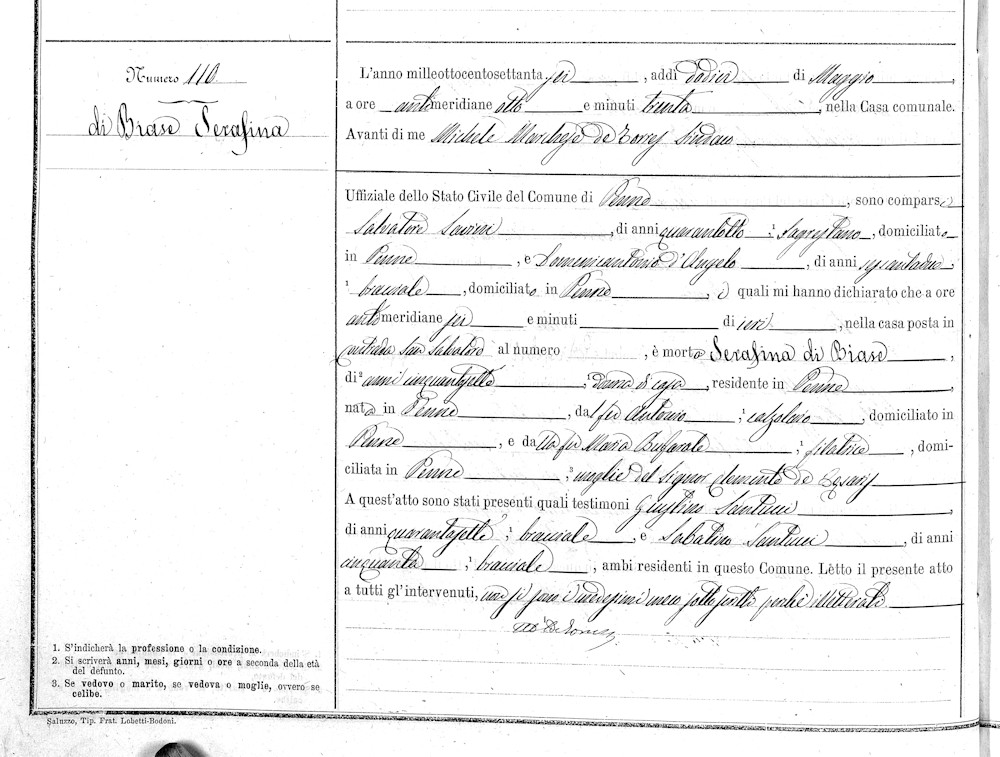 Numero 110
di Biase Serafina
L'anno milleottocentosettanta sei, addì dodici di Maggio,
a ore antimeridiane otto e minuti trenta, nella Casa comunale.
Avanti di me Michele Marchese de Torres Sindaco
Uffiziale dello Stato Civile del Comune di Penne, sono comparsi
Salvatore Severi, di anni quarantotto, ¹ Sagrestano, domiciliato
in Penne, e Domenicantonio d'Angelo, di anni,
¹ bracciale, domiciliato in Penne, i quali mi hanno dichiarato che a ore
antimeridiane sei e minuti di ieri, nella casa posta in
contrada San Salvatore al numero, è morta Serafina di Biase,
di ² anni cinquantasette, ¹ donna di casa, residente in Penne,
nata in Penne, dal fu Antonio, ¹ calzolaio, domiciliato in
Penne, e dalla fu Maria Bufarale, ¹ filatrice, domi-
ciliata in Penne, ³ moglie del Signor Clemente de Cesaris
A quest'atto sono stati presenti quali testimoni Giustino Santucci,
di anni quarantasette, ¹ bracciale, e Sabatino Santucci, di anni
cinquanta, ¹ bracciale, ambi residenti in questo Comune. Letto il presente atto
a tutti gl'intervenuti, non si sono i medesimi meco sottoscritti perchè illitterati.
M. de Torres
1. S'indicherà la professione o la condizione.
2. Si scriverà anni, mesi, giorni o ore a seconda della età
del defunto.
3. Se vedovo o marito, se vedova o moglie, ovvero se
celibe.
Saluzzo, Tip. Frat. Lobetti-Bodoni.